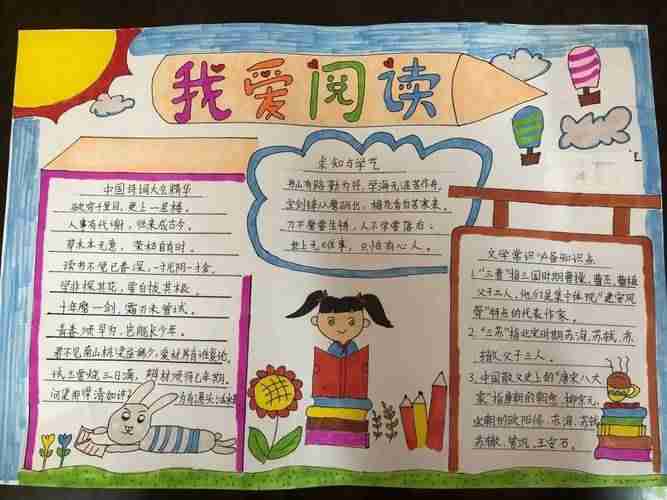 我爱阅读
中国诗词大会精华
欲穷千里目,更上一层楼。
人事有代谢,往来成古今。
草木本无意,荣枯自有时。
读书不觉已春深,一寸光阴一寸金。
学非探其花,要自拔其根。
十年磨一剑,霜刃未曾试。
青春须早为,岂能长少年。
君不见南山栋梁益稀少,爱材养育谁复论。
试玉要烧三日满,辨材须待七年期。
问渠那得清如许 为有源头活水来
求知与学艺
书山有路勤为径,学海无涯苦作舟。
宝剑锋从磨砺出,梅花香自苦寒来。
刀不磨要生锈,人不学要落后。
世上无难事,只怕有心人。
文学常识必备知识点
1."三曹"指三国时期曹操、曹丕、曹植
父子三人,他们是集中体现"建安风
骨"特点的代表作家。
2."三苏"指北宋时期苏洵、苏轼、苏
辙父子三人。
3.中国散文史上的"唐宋八大
家"指唐朝的韩愈、柳宗元,
宋朝的欧阳修、苏洵、苏轼
苏辙、曾巩、王安石。